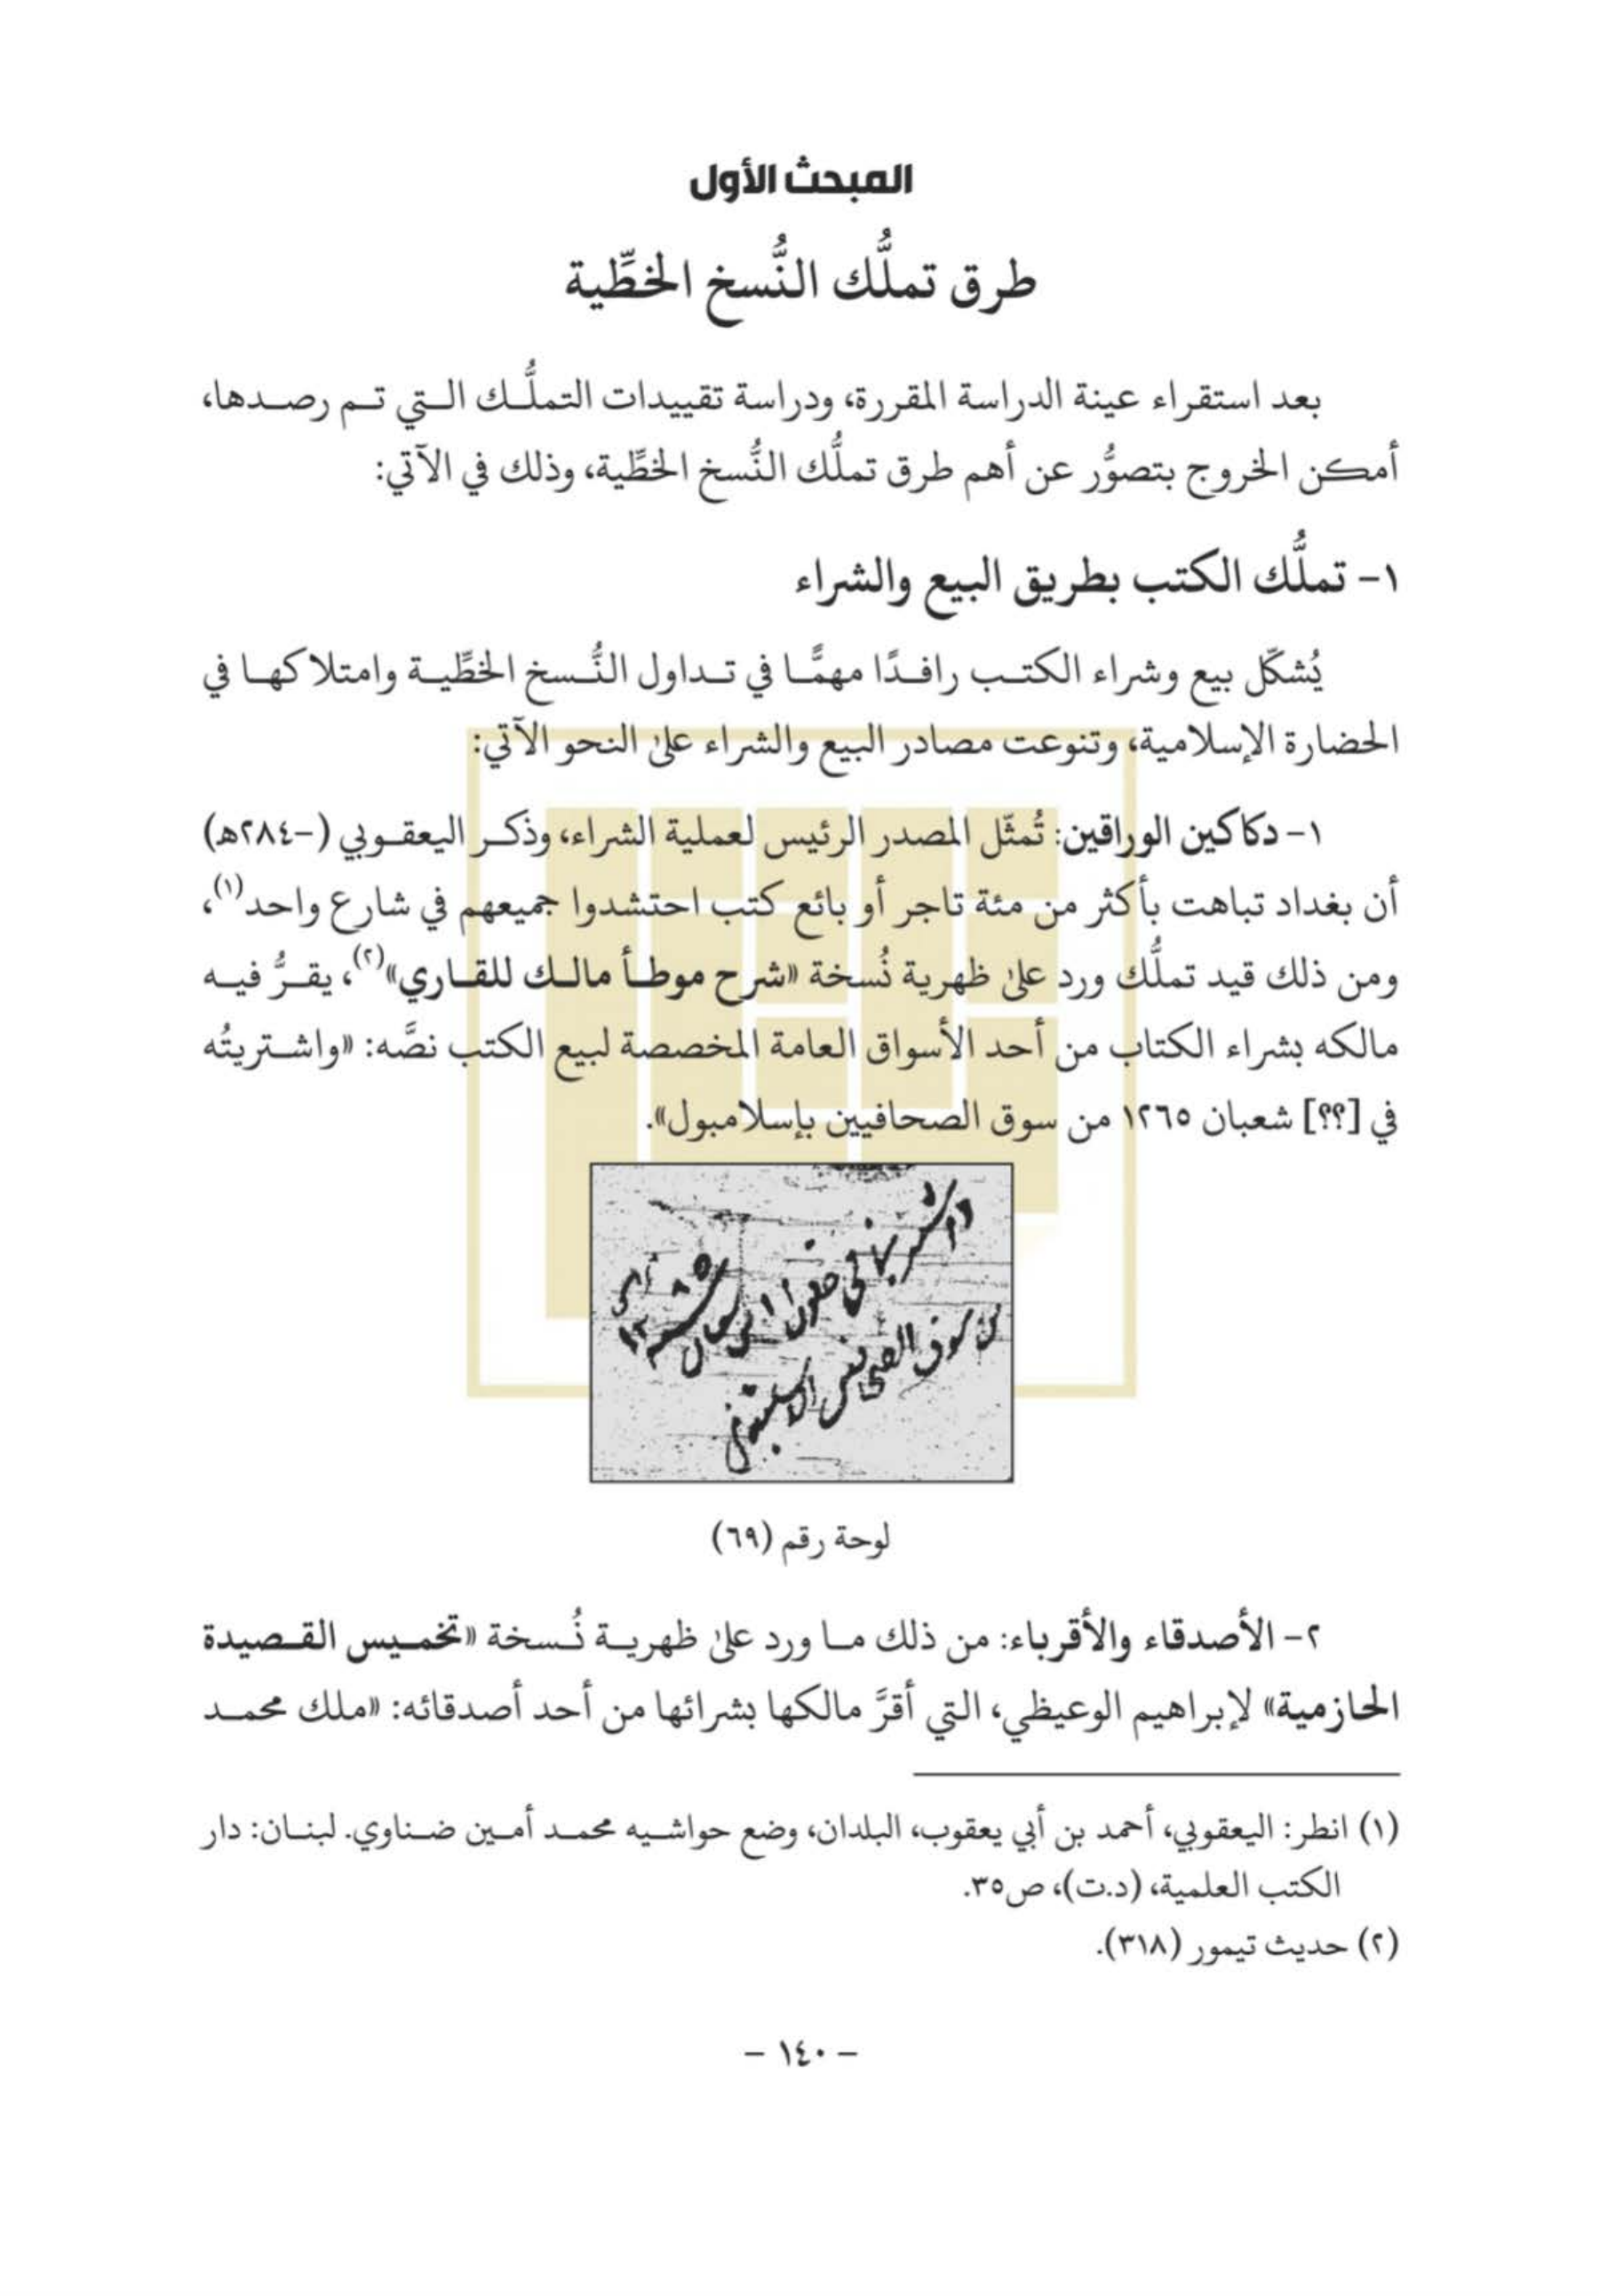 المبحث الأول
طرق تملُّك النُّسخ الخطِّية
بعد استقراء عينة الدراسة المقررة، ودراسة تقييدات التملُّك التي تم رصدها،
أمكن الخروج بتصوُّر عن أهم طرق تملُّك النُّسخ الخطِّية، وذلك في الآتي:
١- تملُّك الكتب بطريق البيع والشراء
يُشكّل بيع وشراء الكتب رافدًا مهمًّا في تداول النُّسخ الخطِّية وامتلاكها في
الحضارة الإسلامية، وتنوعت مصادر البيع والشراء على النحو الآتي:
١- دكاكين الوراقين: تُمثّل المصدر الرئيس لعملية الشراء، وذكر اليعقوبي (-٢٨٤ه)
أن بغداد تباهت بأكثر من مئة تاجر أو بائع كتب احتشدوا جميعهم في شارع واحد(١)،
ومن ذلك قيد تملُّك ورد على ظهرية نُسخة «شرح موطأ مالك للقاري»(٢)، يقرُّ فيه
مالكه بشراء الكتاب من أحد الأسواق العامة المخصصة لبيع الكتب نصَّه: «واشتريتُه
في [؟؟] شعبان ١٢٦٥ من سوق الصحافيين بإسلامبول».
لوحة رقم (٦٩)
٢- الأصدقاء والأقرباء: من ذلك ما ورد على ظهرية نُسخة «تخميس القصيدة
الحازمية» لإبراهيم الوعيظي، التي أقرَّ مالكها بشرائها من أحد أصدقائه: «ملك محمد
(١) انظر: اليعقوبي، أحمد بن أبي يعقوب، البلدان، وضع حواشيه محمد أمين ضناوي. لبنان: دار
الكتب العلمية، (د.ت)، ص٣٥.
(٢) حديث تيمور (٣١٨).
- ١٤٠ -